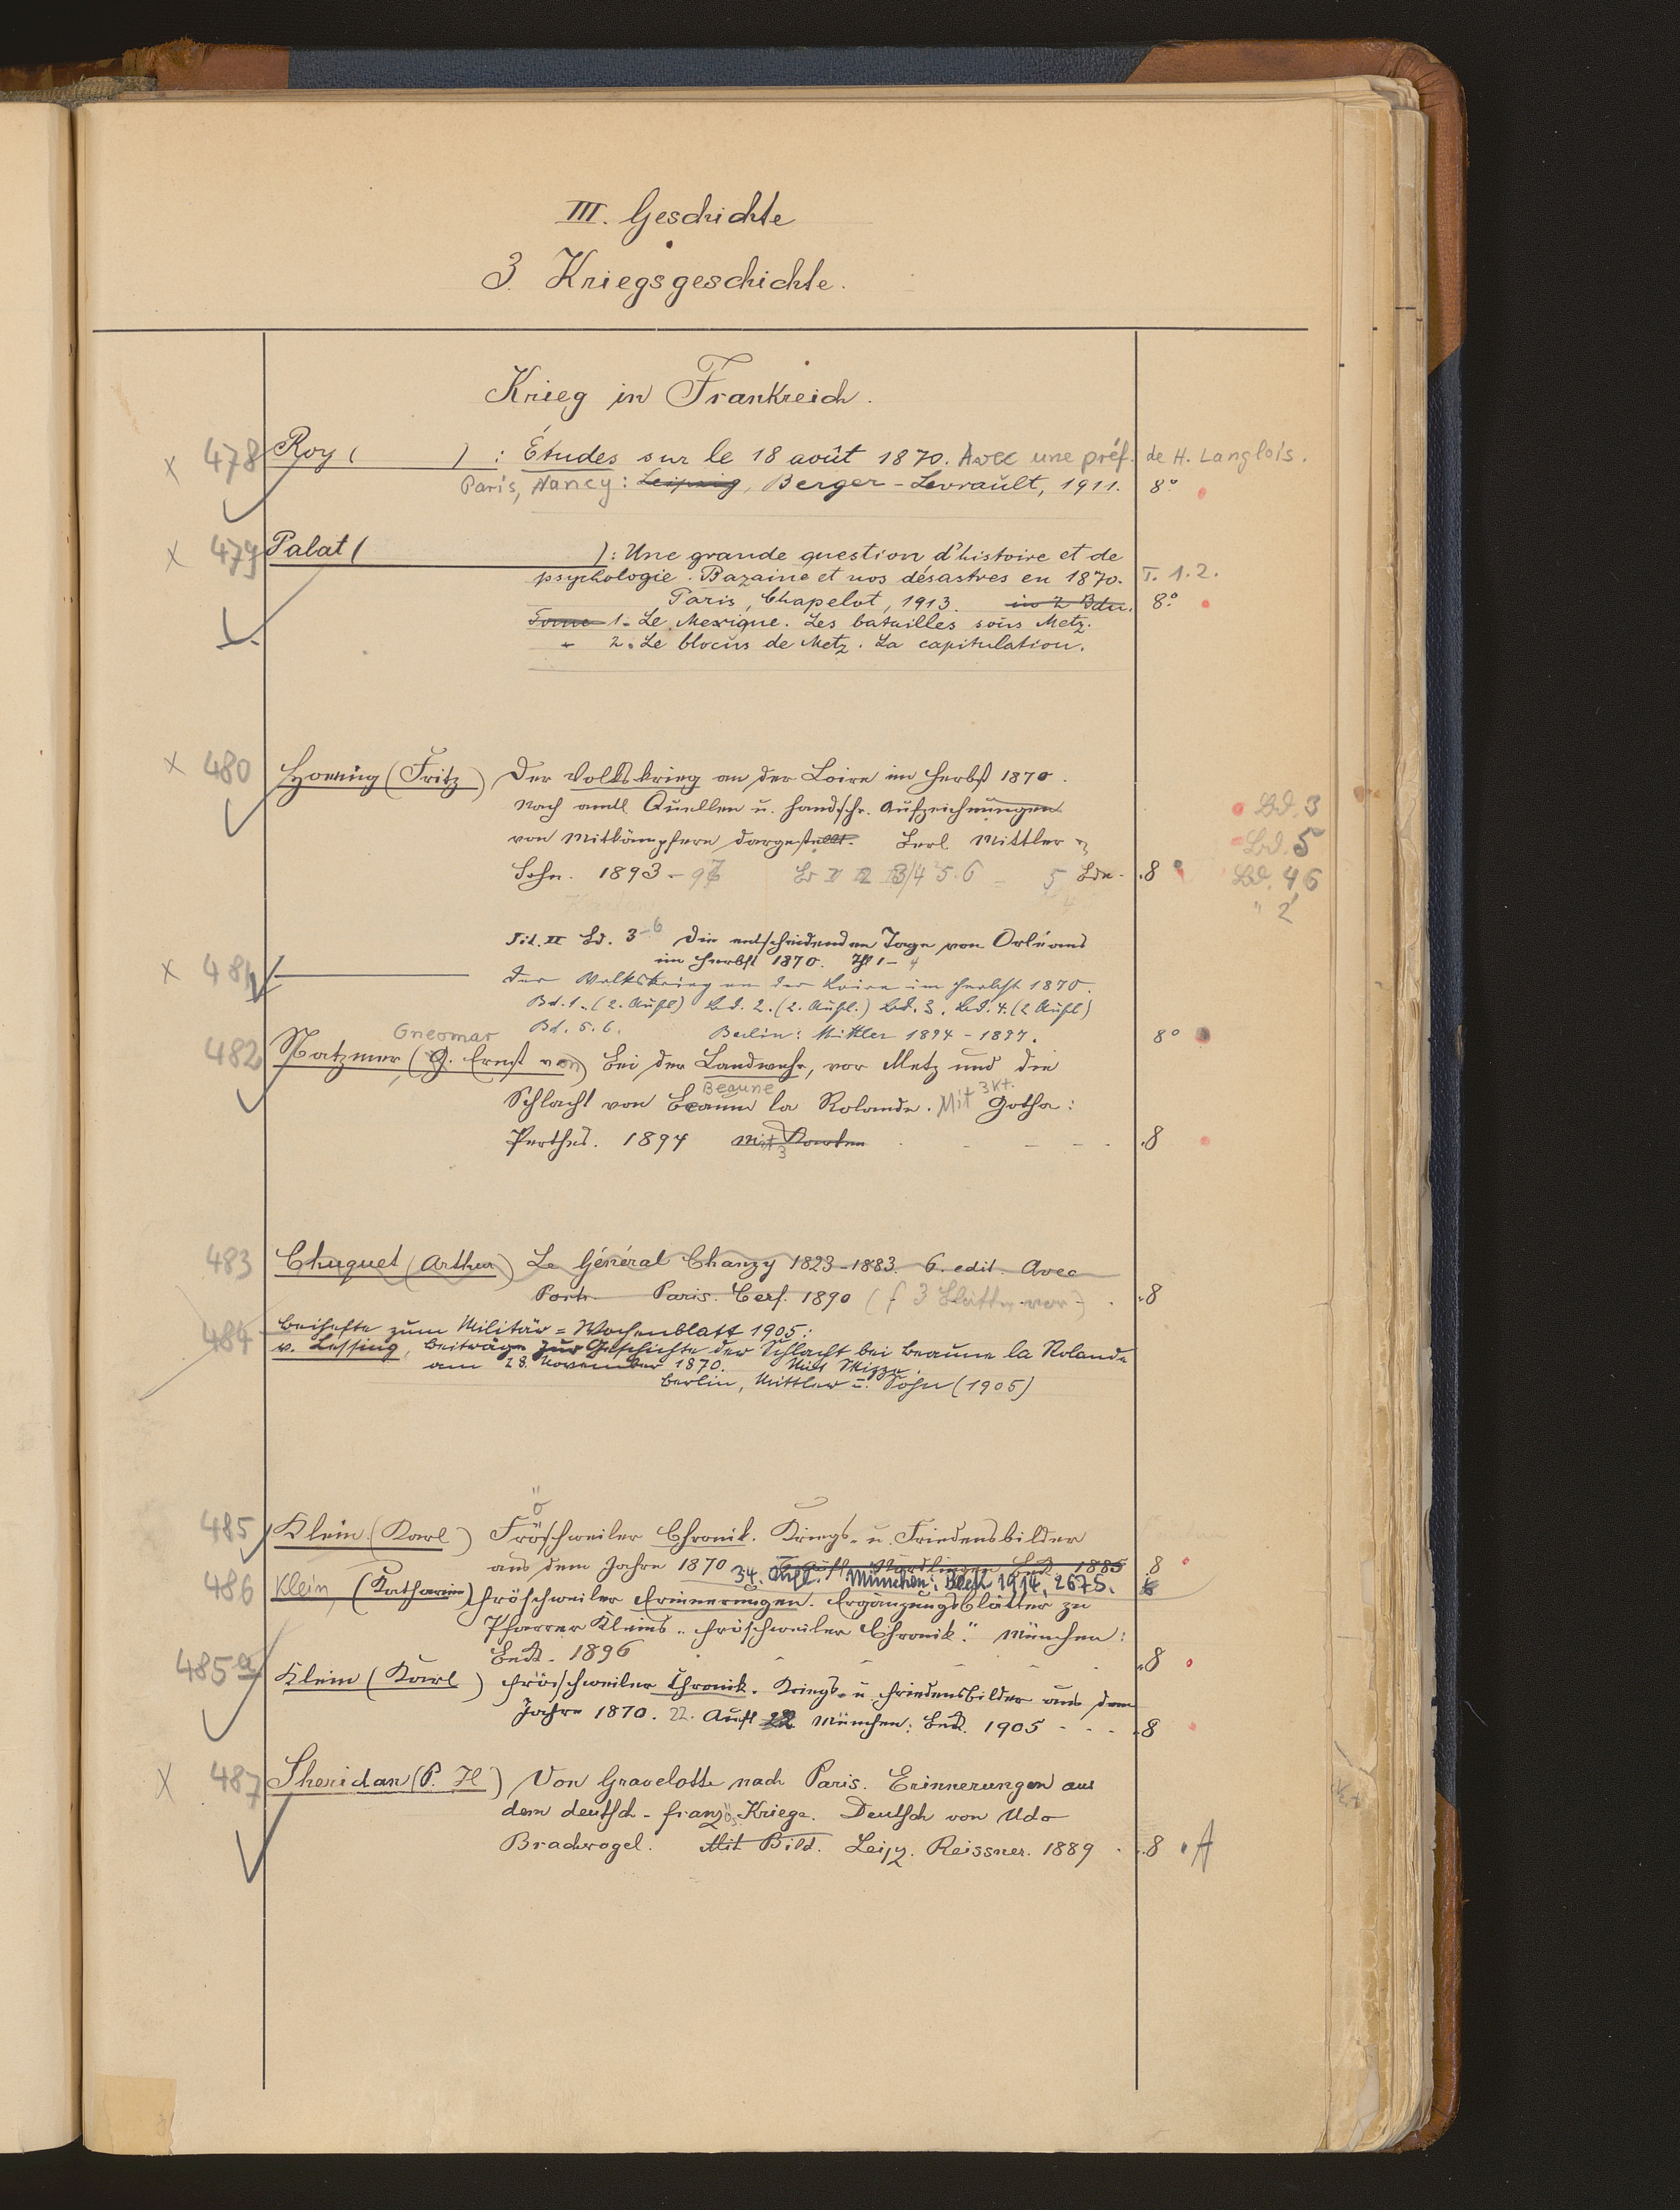 III. Geschichte
3. Kriegsgeschichte.
Krieg in Frankreich.
x 478 Roy ( ) : Études sur le 18 août 1870. Avec une préf. de H. Langlois.
Paris, Nancy: Leipzig, Berger-Levrault, 1911. 8°
x 479 Palat ( ) : Une grande question d'histoire et de
psychologie. Bazaine et nos désastres en 1870. T. 1.2.
Paris, Chapelot, 1913. in 2 Bdn. 8°
Tome 1. Le Mexique. Les batailles sous Metz.
" 2. Le blocus de Metz. La capitulation.
x 480 Hoenig (Fritz) Der Volkskrieg an der Loire im Herbst 1870.
Nach amtl Quellen u. handschr. Aufzeichnungen
von Mitkämpfern dargestellt. Berl. Mittler u
Sohn. 1893-97 3/4 5.6 = 5 Bde. 8
Bd. 3
Bd. 5
Bd. 4, 6
" 2
Tit. II Bd. 3-6 Die entscheidenden Tage von Orléans
im Herbst 1870. Th 1-4
x 481 Der Volkskrieg an der Loire im Herbst 1870.
Bd. 1. (2. Aufl) Bd. 2. (2. Aufl.) Bd. 3. Bd. 4. (2 Aufl)
Bd. 5. 6. Berlin: Mittler 1894-1897. 8°
Gneomar
482 Natzmer, (G. Ernst von) Bei der Landwehr, vor Metz und die
Schlacht von Beaune la Rolande. Mit 3 Kt. Gotha:
Beaune
Perthes. 1894 Mit 3 Karten 8
483 Chuquet (Arthur) Le Général Chanzy 1823-1883. 6. edit. Avec
Portr. Paris. Cerf. 1890 (f 3 Blätter vor) 8
484 Beihefte zum Militär=Wochenblatt 1905:
v. Lessing, Beiträge zur Geschichte der Schlacht bei Beaune la Rolande
am 28. November 1870. Mit Skizze.
Berlin, Mittler u. Sohn (1905)
485 Klein (Karl) Fröschweiler Chronik. Kriegs- u. Friedensbilder
aus dem Jahre 1870 Aufl Nördlingen Beck 1885 8
34. Aufl. München: Beck 1914. 267 S.
486 Klein, (Katharina) Fröschweiler Erinnerungen. Ergänzungsblätter zu
Pfarrer Kleins "Fröschweiler Chronik." München:
Beck. 1896 8
485a Klein (Karl) Fröschweiler Chronik. Kriegs- u. Friedensbilder aus dem
Jahre 1870. 22. Aufl 22 München: Beck. 1905 8
x 487 Sheridan (P. H) Von Gravelotte nach Paris. Erinnerungen aus
dem deutsch-französ. Kriege. Deutsch von Udo
Brachvogel. Mit Bild. Leipz. Reissner. 1889 8 A